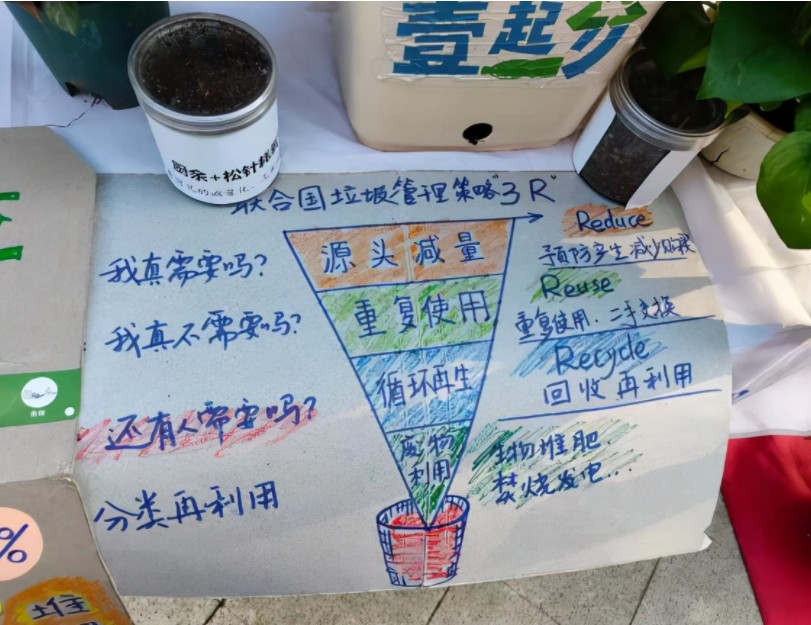 壹起分
厨余+松针
联合国垃圾管理策略"3R"
Reduce
预防产生减少贝买
我真需要吗?
源头减量
Reuse
重复使用.二手交换
我真不需要吗?
重复使用
Recycle
回收再利用
循环再生
还有人需要吗?
废物
利用
生物堆肥.
焚烧发电...
分类再利用
%
堆